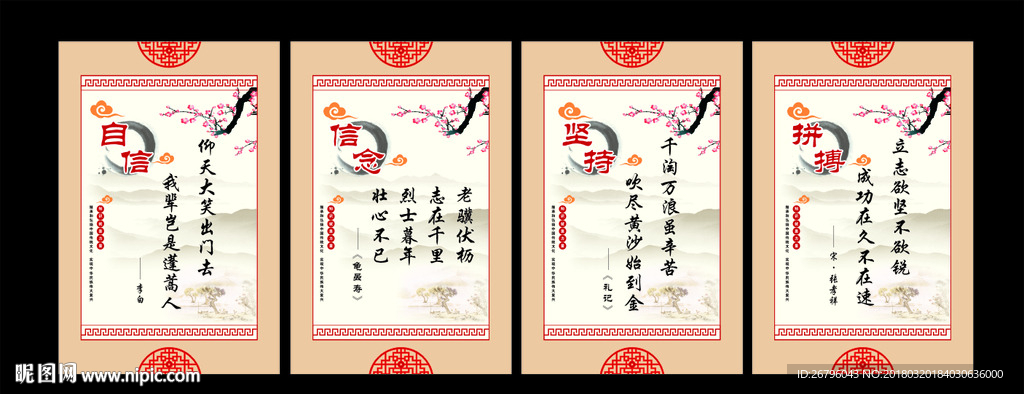 自信
仰天大笑出门去
我辈岂是蓬蒿人
——李白
信念
老骥伏枥
志在千里
烈士暮年
壮心不已
——《龟虽寿》
坚持
千淘万浪虽辛苦
吹尽黄沙始到金
——《礼记》
拼搏
立志欲坚不欲锐
成功在久不在速
——宋·张孝祥
昵图网 www.nipic.com
ID:26796043 NO:20180320184030636000